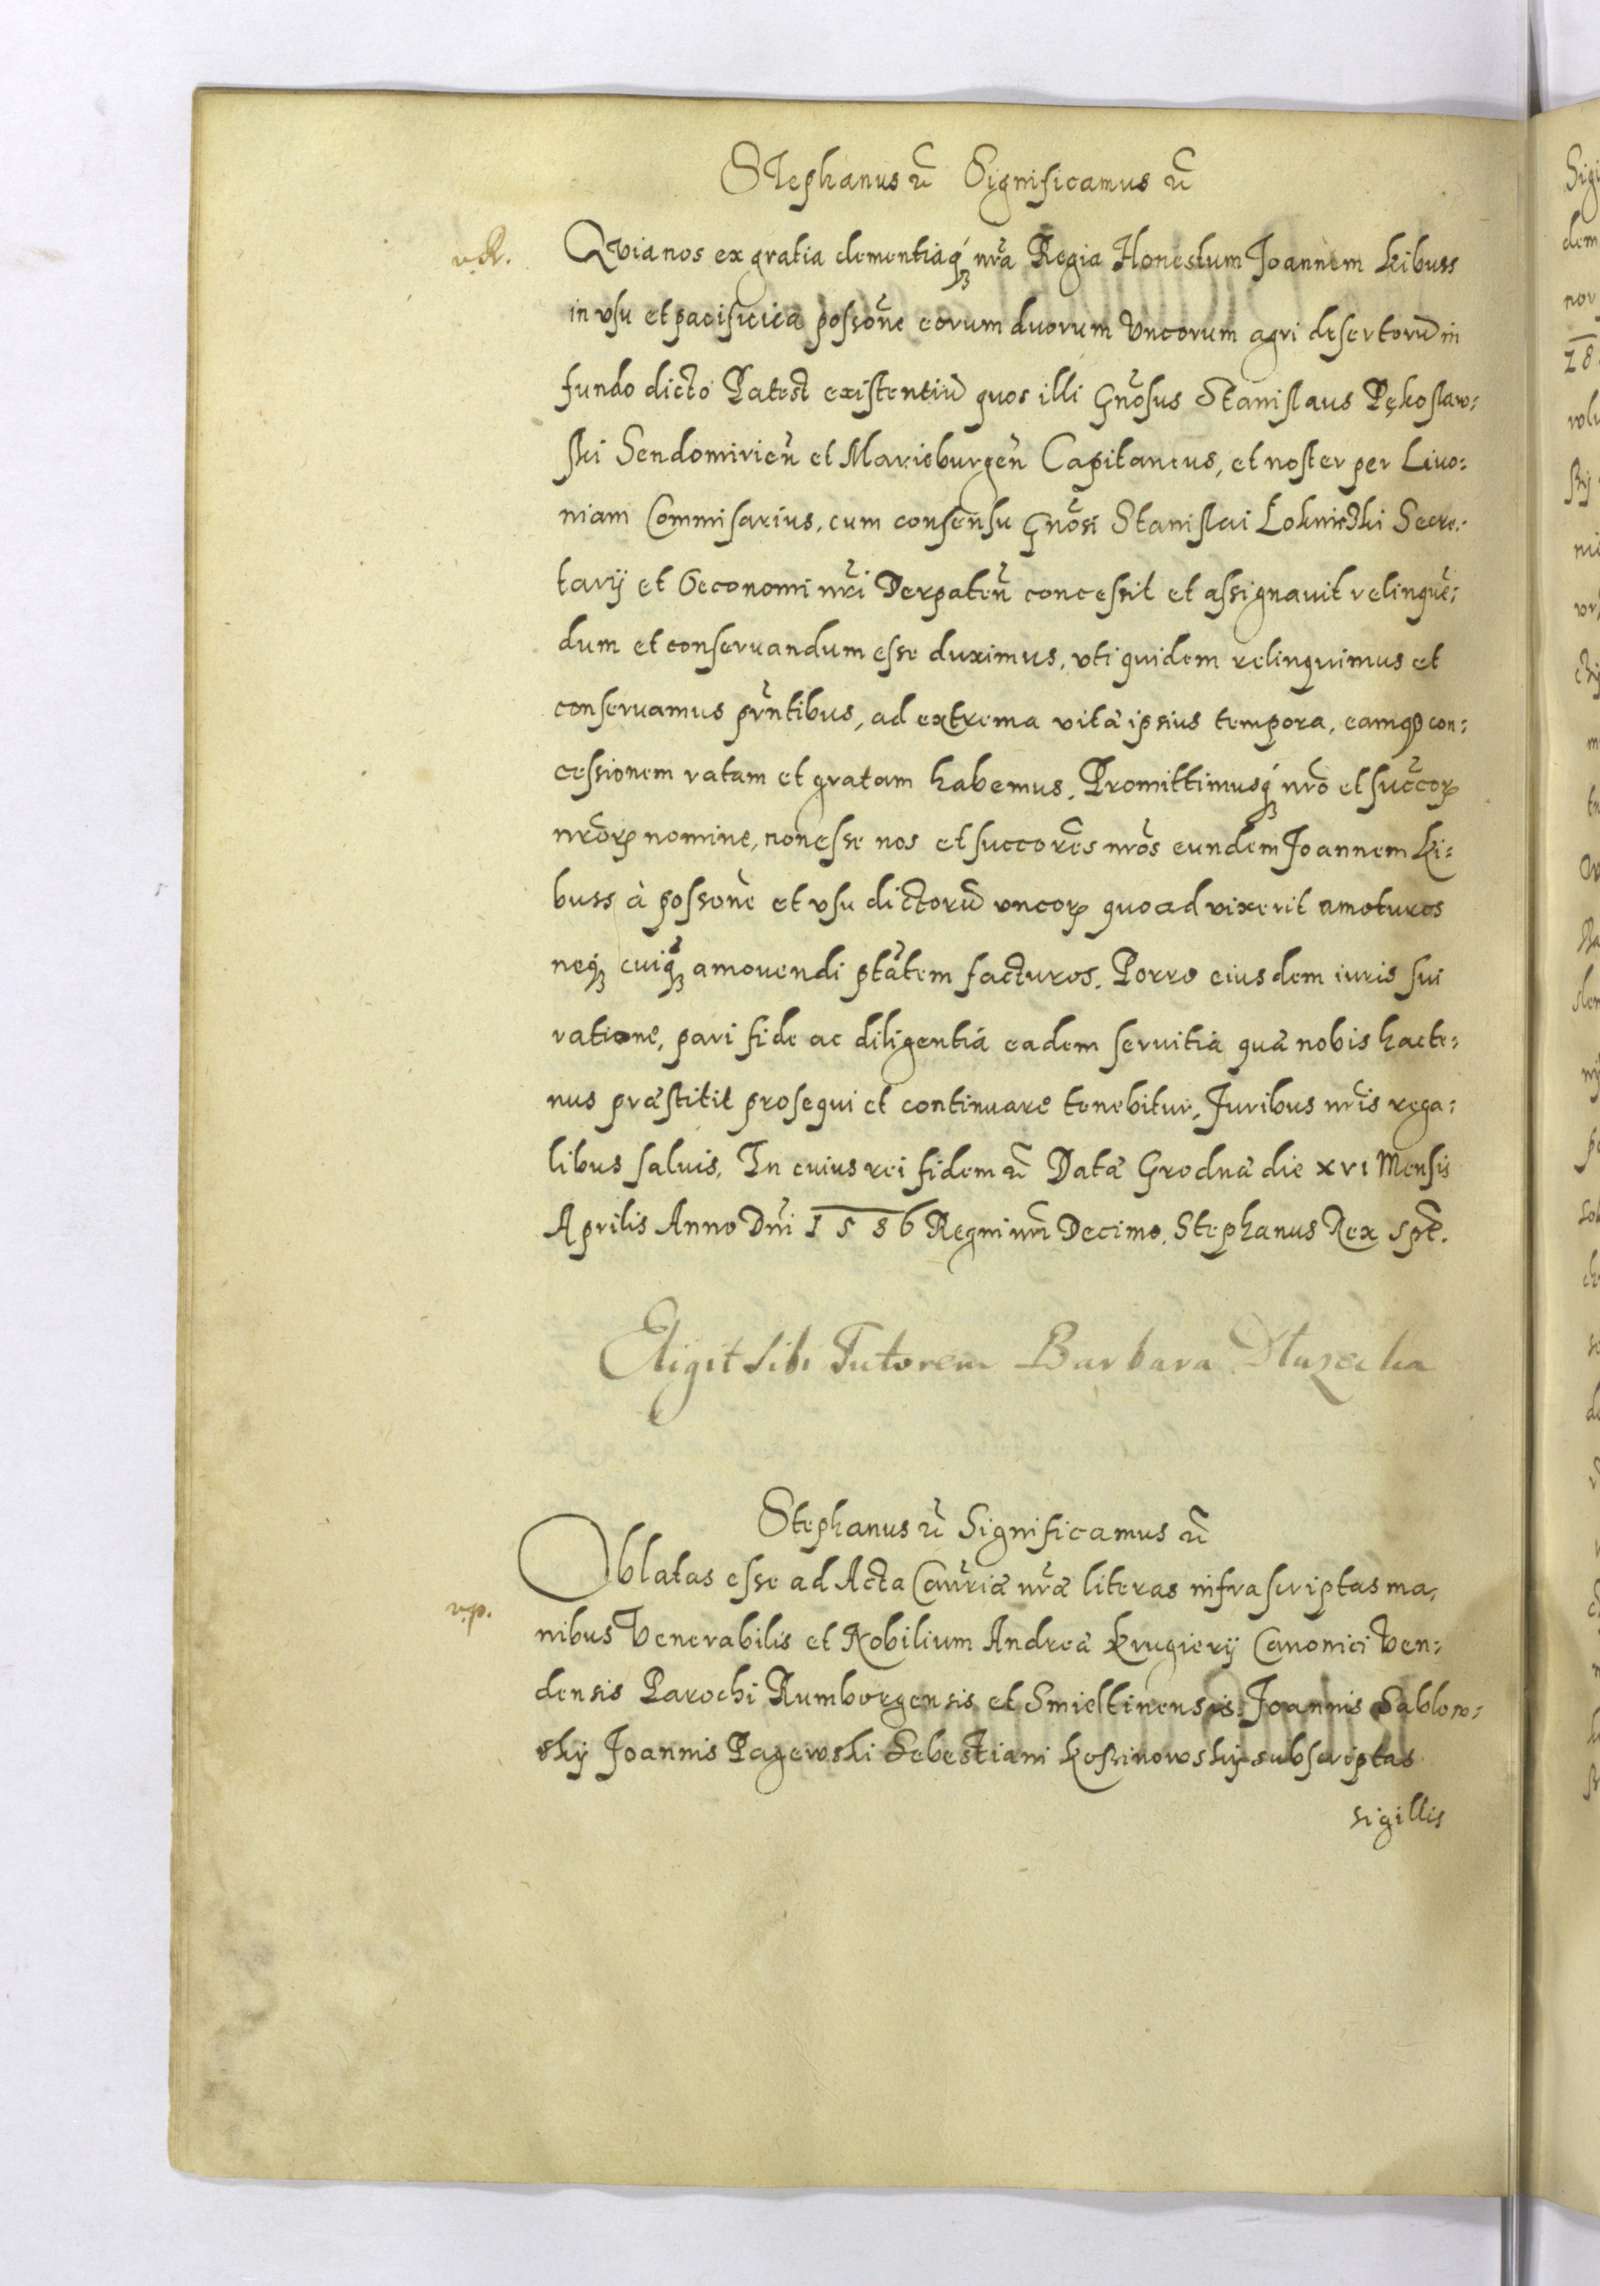 Stephanus etc̃ Significamus etc̃
v.R. Qvia nos ex gratia clementiaq́ꝫ nr̃a Regia Honestum Joannem Kibuss
in vsu et pacificica possõne eorum duorum Vncorum agri desertorũ in
fundo dicto Patest existentiũ quos illi Gnõsus Stanislaus Pękoslaw⸗
ski Sendomirieñ et Marieburgeñ Capitaneus, et noster per Liuo⸗
niam Commisarius, cum consensu Gnõsi Stanislai Loknicki Secre⸗
tarij et Oeconomi nr̃i Derpateñ concessit et assignauit relinquẽ⸗
dum et conseruandum esse duximus, vti quidem relinquimus et
conseruamus pr̃ntibus, ad extrema vitæ ipsius tempora, eamqꝫ con⸗
cessionem ratam et gratam habemus. Promittimusq́ꝫ nr̃o et succ̃orꝝ
nr̃orꝝ nomine, non esse nos et succorẽs nr̃os eundem Joannem Ki⸗
buss à possonẽ et vsu dictorũ vncorꝝ quoad vixerit amoturos
neqꝫ cuiq̃ꝫ amouendi ptãtem facturos. Porro eiusdem iuris sui
ratione, pari fide ac diligentiá eadem seruitia quæ nobis hacte⸗
nus præstitit prosequi et continuare tenebitur, Juribus nr̃is rega⸗
libus saluis. In cuius rei fidem etc̃ Datæ Grodnæ die XVI Mensis
Aprilis Anno Dñi 1586 Regni nr̃i Decimo. Stephanus Rex spt̃.
Eligit sibi Tutorem Barbara Dłuzecka
Stephanus etc̃ Significamus etc̃
Oblatas esse ad Acta Canr̃iæ nr̃æ literas infrascriptas ma⸗
v.p. nibus Venerabilis et Nobilium Andreæ Krugierij Canonici Ven⸗
densis Parochi Rumborgensis et Smieltinensis, Joannis Sablow⸗
skij Joannis Pagewski Sebestiani Koßinowskij subscriptas
sigillis